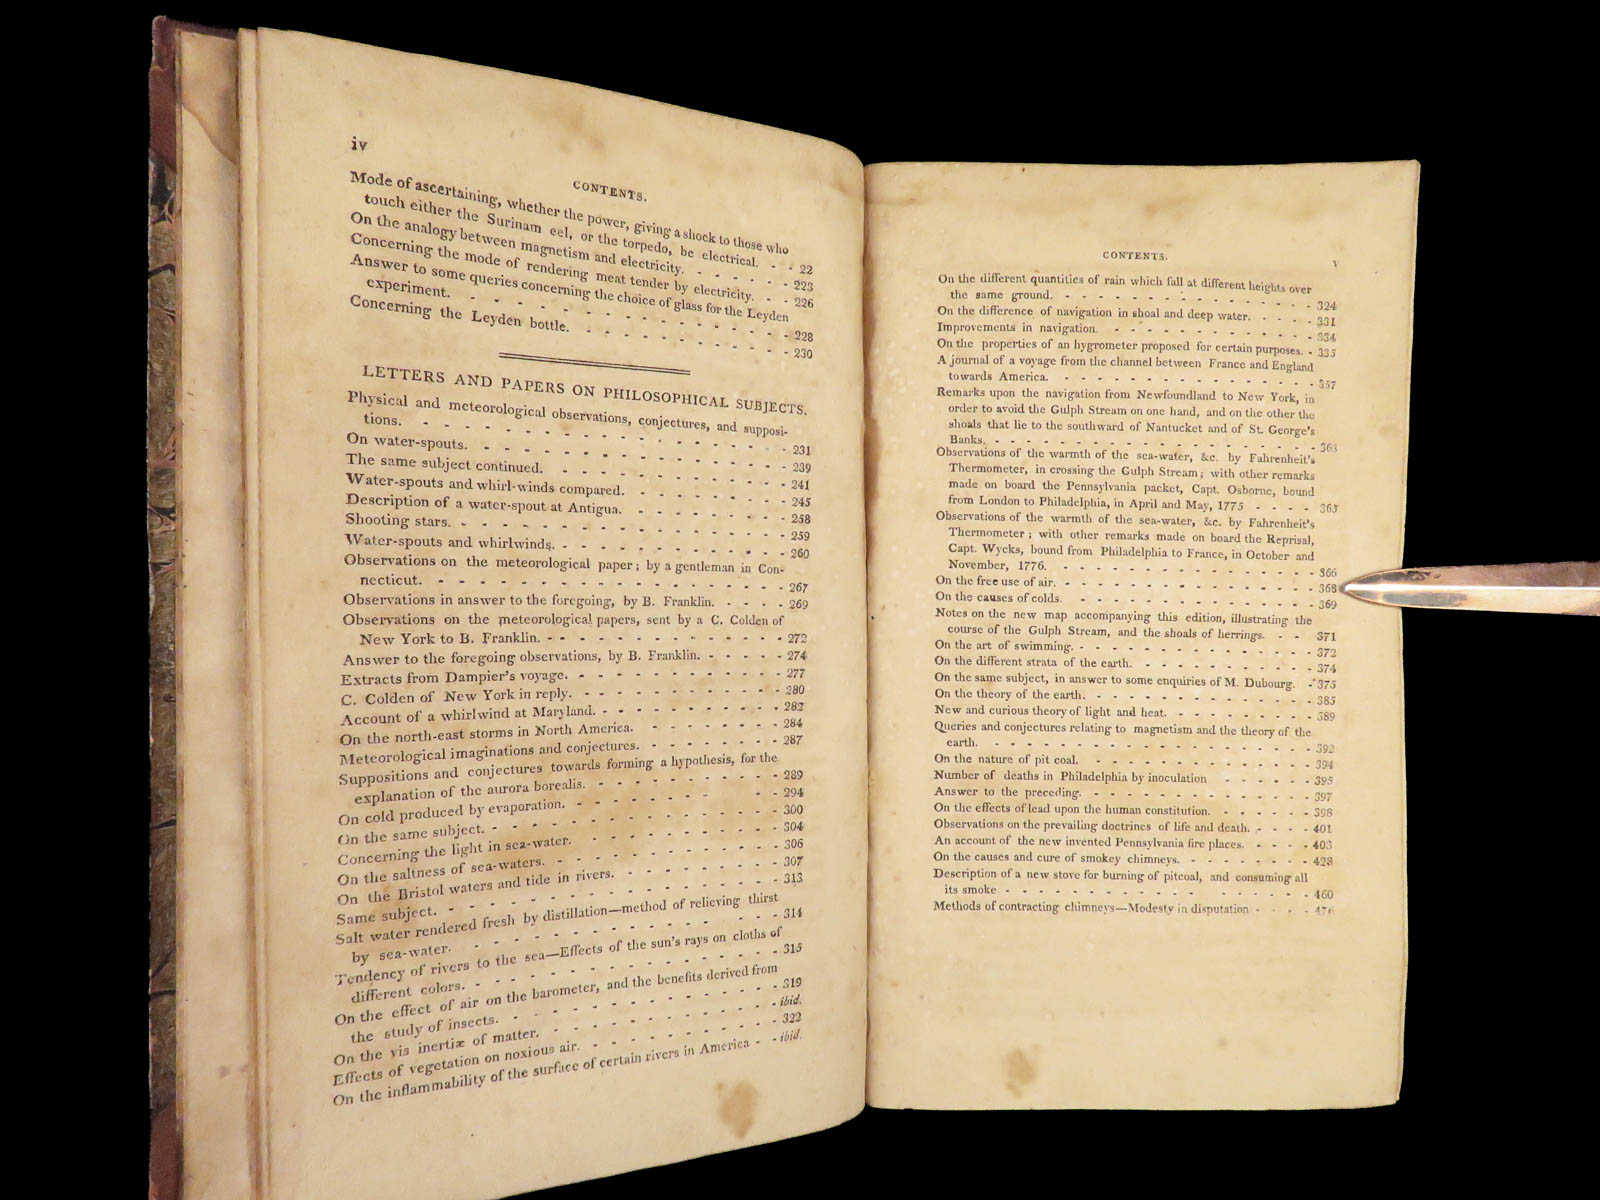 iv
CONTENTS.
Mode of ascertaining, whether the power, giving a shock to those who
touch either the Surinam eel, or the torpedo, be electrical. - - 22
On the analogy between magnetism and electricity. - - - - - - 223
Concerning the mode of rendering meat tender by electricity. - - 226
Answer to some queries concerning the choice of glass for the Leyden
experiment. - - - - - - - - - - - - - - 228
Concerning the Leyden bottle. - - - - - - - - - - - 230
LETTERS AND PAPERS ON PHILOSOPHICAL SUBJECTS.
Physical and meteorological observations, conjectures, and supposi-
tions. - - - - - - - - - - - - - - - - - 231
On water-spouts. - - - - - - - - - - - - - - - 239
The same subject continued. - - - - - - - - - - - 241
Water-spouts and whirl-winds compared. - - - - - - - - 245
Description of a water-spout at Antigua. - - - - - - - - 258
Shooting stars. - - - - - - - - - - - - - - - - 259
Water-spouts and whirlwinds. - - - - - - - - - - - 260
Observations on the meteorological paper; by a gentleman in Con-
necticut. - - - - - - - - - - - - - - - - - 267
Observations in answer to the foregoing, by B. Franklin. - - - - 269
Observations on the meteorological papers, sent by a C. Colden of
New York to B. Franklin. - - - - - - - - - - - - 272
Answer to the foregoing observations, by B. Franklin. - - - - - 274
Extracts from Dampier's voyage. - - - - - - - - - - 277
C. Colden of New York in reply. - - - - - - - - - - 280
Account of a whirlwind at Maryland. - - - - - - - - - 282
On the north-east storms in North America. - - - - - - - 284
Meteorological imaginations and conjectures. - - - - - - - 287
Suppositions and conjectures towards forming a hypothesis, for the
explanation of the aurora borealis. - - - - - - - - - 289
On cold produced by evaporation. - - - - - - - - - 294
On the same subject. - - - - - - - - - - - - - - 300
Concerning the light in sea-water. - - - - - - - - - - 304
On the saltness of sea-waters. - - - - - - - - - - - 306
On the Bristol waters and tide in rivers. - - - - - - - - 307
Same subject. - - - - - - - - - - - - - - - - 313
Salt water rendered fresh by distillation—method of relieving thirst
by sea-water. - - - - - - - - - - - - - - - 314
Tendency of rivers to the sea—Effects of the sun's rays on cloths of
different colors. - - - - - - - - - - - - - - 315
On the effect of air on the barometer, and the benefits derived from
the study of insects. - - - - - - - - - - - - - 319
On the vis inertiæ of matter. - - - - - - - - - - - ibid.
Effects of vegetation on noxious air. - - - - - - - - - 322
On the inflammability of the surface of certain rivers in America - - ibid.
CONTENTS.
v
On the different quantities of rain which fall at different heights over
the same ground. - - - - - - - - - - - - - - 324
On the difference of navigation in shoal and deep water. - - - - 331
Improvements in navigation. - - - - - - - - - - - - 334
On the properties of an hygrometer proposed for certain purposes. - 335
A journal of a voyage from the channel between France and England
towards America. - - - - - - - - - - - - - - 357
Remarks upon the navigation from Newfoundland to New York, in
order to avoid the Gulph Stream on one hand, and on the other the
shoals that lie to the southward of Nantucket and of St. George's
Banks. - - - - - - - - - - - - - - - - - - 363
Observations of the warmth of the sea-water, &c. by Fahrenheit's
Thermometer, in crossing the Gulph Stream; with other remarks
made on board the Pennsylvania packet, Capt. Osborne, bound
from London to Philadelphia, in April and May, 1775 - - - - 365
Observations of the warmth of the sea-water, &c. by Fahrenheit's
Thermometer; with other remarks made on board the Reprisal,
Capt. Wycks, bound from Philadelphia to France, in October and
November, 1776. - - - - - - - - - - - - - - 366
On the free use of air. - - - - - - - - - - - - - - 368
On the causes of colds. - - - - - - - - - - - - - 369
Notes on the new map accompanying this edition, illustrating the
course of the Gulph Stream, and the shoals of herrings. - - 371
On the art of swimming. - - - - - - - - - - - - - 372
On the different strata of the earth. - - - - - - - - - - 374
On the same subject, in answer to some enquiries of M. Dubourg. - 375
On the theory of the earth. - - - - - - - - - - - - 385
New and curious theory of light and heat. - - - - - - - - 389
Queries and conjectures relating to magnetism and the theory of the
earth. - - - - - - - - - - - - - - - - - - 392
On the nature of pit coal. - - - - - - - - - - - - 394
Number of deaths in Philadelphia by inoculation - - - - - - 395
Answer to the preceding. - - - - - - - - - - - - - 397
On the effects of lead upon the human constitution. - - - - - - 398
Observations on the prevailing doctrines of life and death. - - - - 401
An account of the new invented Pennsylvania fire places. - - - - 403
On the causes and cure of smokey chimneys. - - - - - - - - 428
Description of a new stove for burning of pitcoal, and consuming all
its smoke - - - - - - - - - - - - - - - - 460
Methods of contracting chimneys—Modesty in disputation - - - - 476